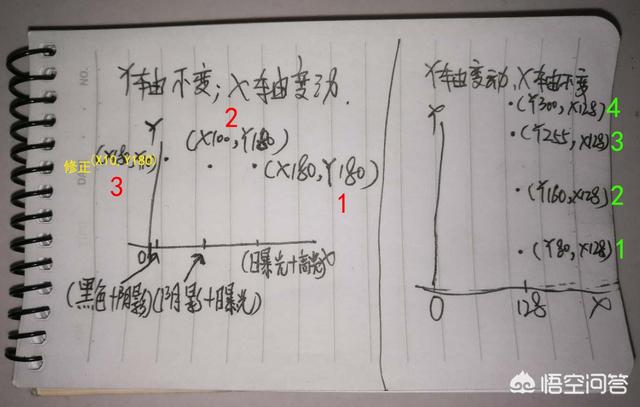 Y轴不变;X轴变动.
2
Y
(X100,Y180)
修正(X10,Y180)
(X180,Y180)
3
1
0
X
(黑色+阴影)(阴影+曝光)
(曝光+高光)
NO.
Y轴变动,X轴不变
Y
(Y300,X128) 4
(Y255,X128) 3
(Y160,X128) 2
(Y80,X128) 1
0
128
X
悟空问答